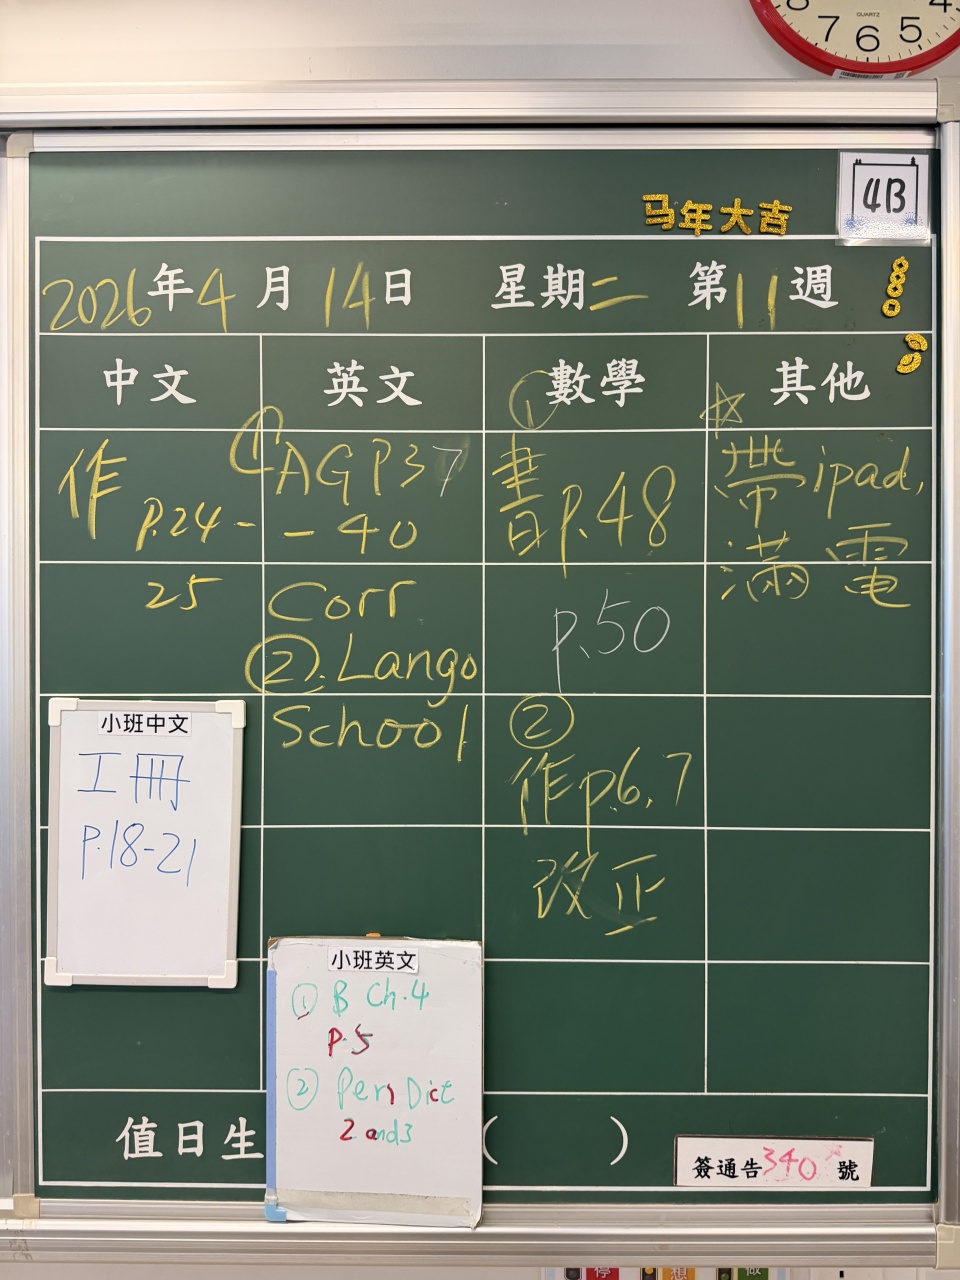 QUARTZ
8 7 6 5 4
4B
马年大吉
2026年4月14日 星期二 第11週
中文
作
P.24-
25
英文
① AGP37
-40
Corr
②.Lango
School
數學
①
書p.48
p.50
②
作p.6,7
改正
其他
☆
帶ipad,
滿電
小班中文
工冊
P.18-21
小班英文
① B Ch.4
P.5
② Pen Dict
2 and 3
值日生 ( )
簽通告340號
停
想
做